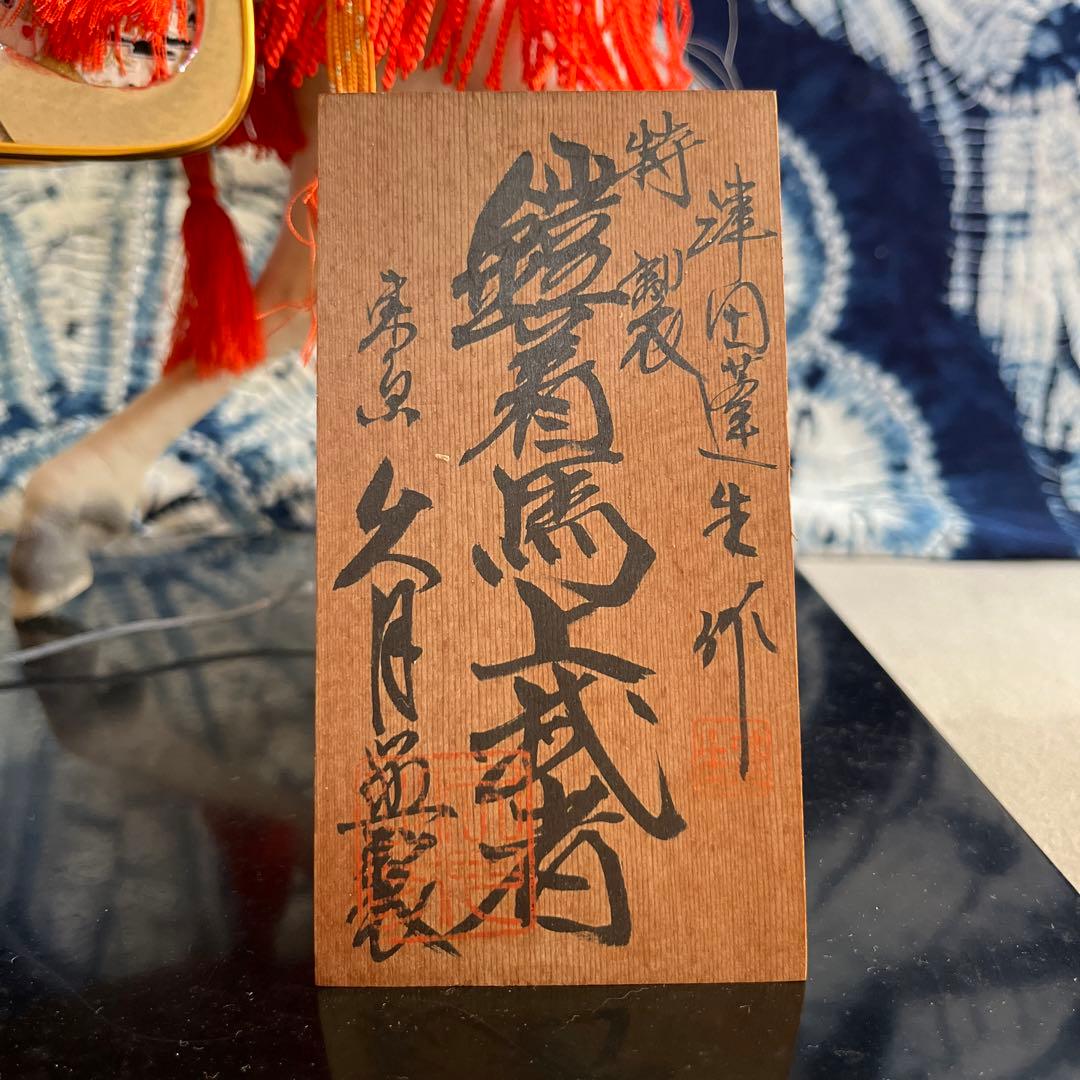 津田蓬生作
特製
鎧着馬上武者
東京
久月謹製